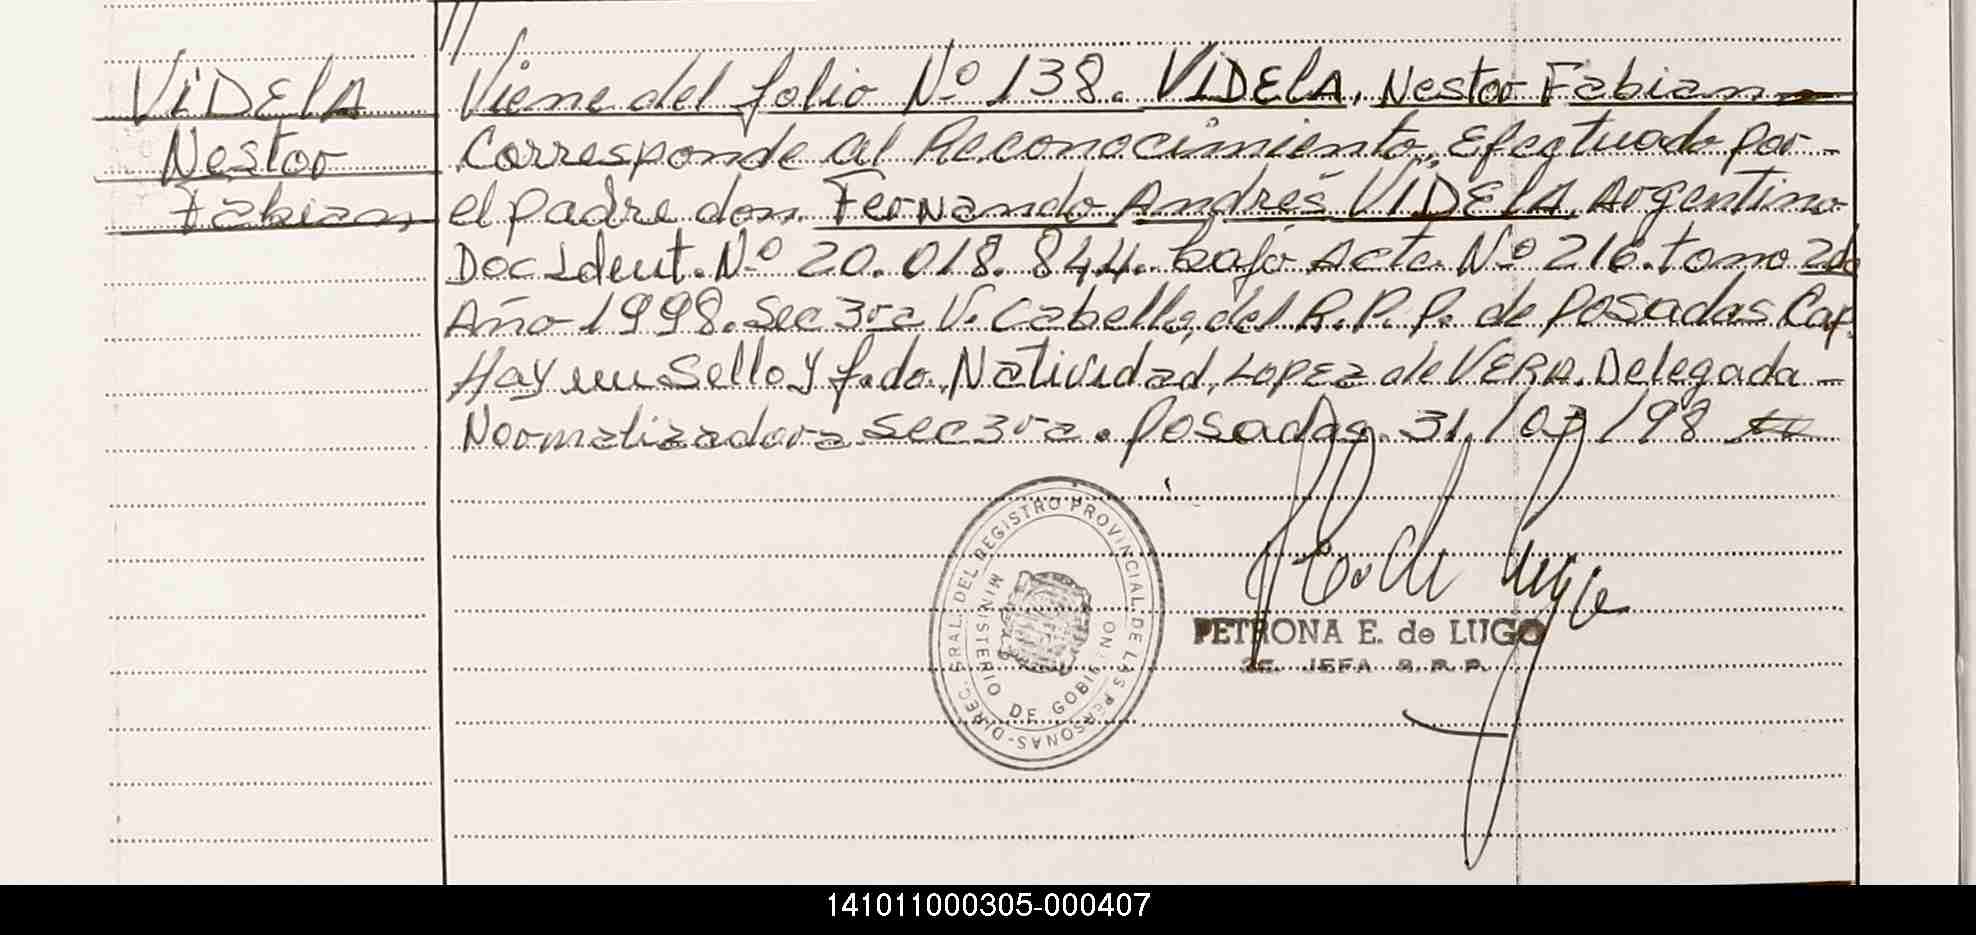 VIDElA
Nestor
Fabian
Viene del folio Nº 138. VIDElA, Nestor Fabian
Corresponde al Reconocimiento, Efectuado por -
el padre don Fernando Andrés VIDElA, Argentino
Doc Ident. Nº 20.018.844. bajo Acta Nº 216. tomo 2do
Año 1998. Sec 3ra V. Cabello, del R.P.P. de Posadas Cap.
Hay un Sello y f.do. Natividad, Lopez de VERA. Delegada -
Normalizadora Sec 3ra. Posadas 31/03/98
DIREC. GRAL. DEL REGISTRO PROVINCIAL DE LAS PERSONAS-
MINISTERIO DE GOBIERNO
PETRONA E. de LUGO
JEFA R.P.P.
141011000305-000407